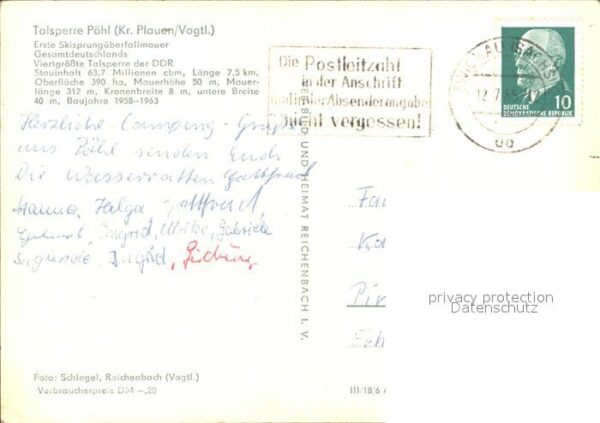 Talsperre Pöhl (Kr. Plauen/Vogtl.)
Erste Skisprungüberfallmauer
Gesamtdeutschlands
Viertgrößte Talsperre der DDR
Stauinhalt 63,7 Millionen cbm, Länge 7,5 km,
Oberfläche 390 ha, Mauerhöhe 50 m, Mauer-
länge 312 m, Kronenbreite 8 m, untere Breite
40 m, Baujahre 1958–1963
Herzliche Camping-Grüße
aus Pöhl senden Euch
Die Wasserratten
Hanna, Helga,
Ingrid, Ulrike, Gabriele
Ingrid,
Foto: Schlegel, Reichenbach (Vogtl.)
Verbraucherpreis DM –,20
BILD UND HEIMAT REICHENBACH I. V.
III/18/6
Die Postleitzahl
in der Anschrift
und in der Absenderangabe
nicht vergessen!
DEUTSCHE
DEMOKRATISCHE REPUBLIK
10
privacy protection
Datenschutz